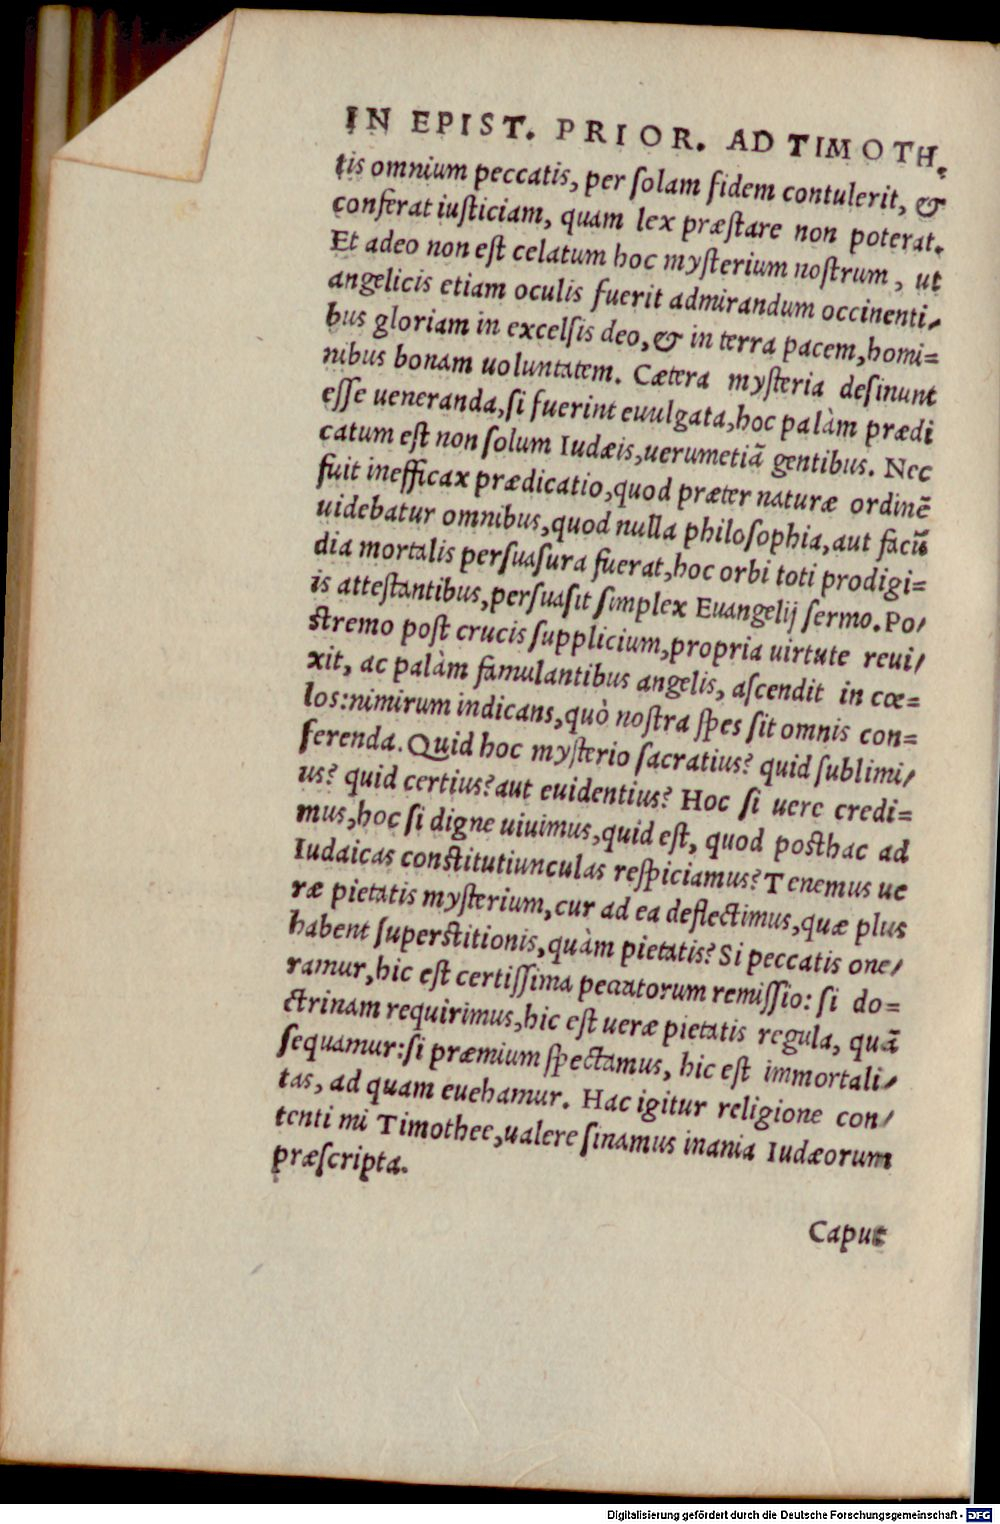 IN EPIST. PRIOR. AD TIMOTH.
tis omnium peccatis, per ſolam fidem contulerit, &
conferat iuſticiam, quam lex præſtare non poterat.
Et adeo non eſt celatum hoc myſterium noſtrum, ut
angelicis etiam oculis fuerit admirandum occinenti-
bus gloriam in excelſis deo, & in terra pacem, homi=
nibus bonam uoluntatem. Cætera myſteria deſinunt
eſſe ueneranda, ſi fuerint euulgata, hoc palàm prædi
catum eſt non ſolum Iudæis, uerumetiã gentibus. Nec
fuit inefficax prædicatio, quod præter naturæ ordinẽ
uidebatur omnibus, quod nulla philoſophia, aut facũ
dia mortalis perſuaſura fuerat, hoc orbi toti prodigi=
is atteſtantibus, perſuaſit ſimplex Euangelij ſermo. Po-
ſtremo poſt crucis ſupplicium, propria uirtute reui-
xit, ac palàm famulantibus angelis, aſcendit in cœ=
los: nimirum indicans, quò noſtra ſpes ſit omnis con=
ferenda. Quid hoc myſterio ſacratius? quid ſublimi-
us? quid certius? aut euidentius? Hoc ſi uere credi=
mus, hoc ſi digne uiuimus, quid eſt, quod poſthac ad
Iudaicas conſtitutiunculas reſpiciamus? Tenemus ue
ræ pietatis myſterium, cur ad ea deflectimus, quæ plus
habent ſuperſtitionis, quàm pietatis? Si peccatis one-
ramur, hic eſt certiſſima peccatorum remiſſio: ſi do=
ctrinam requirimus, hic eſt ueræ pietatis regula, quã
ſequamur: ſi præmium ſpectamus, hic eſt immortali-
tas, ad quam euehamur. Hac igitur religione con-
tenti mi Timothee, ualere ſinamus inania Iudæorum
præſcripta.
Caput
Digitalisierung gefördert durch die Deutsche Forschungsgemeinschaft - DFG